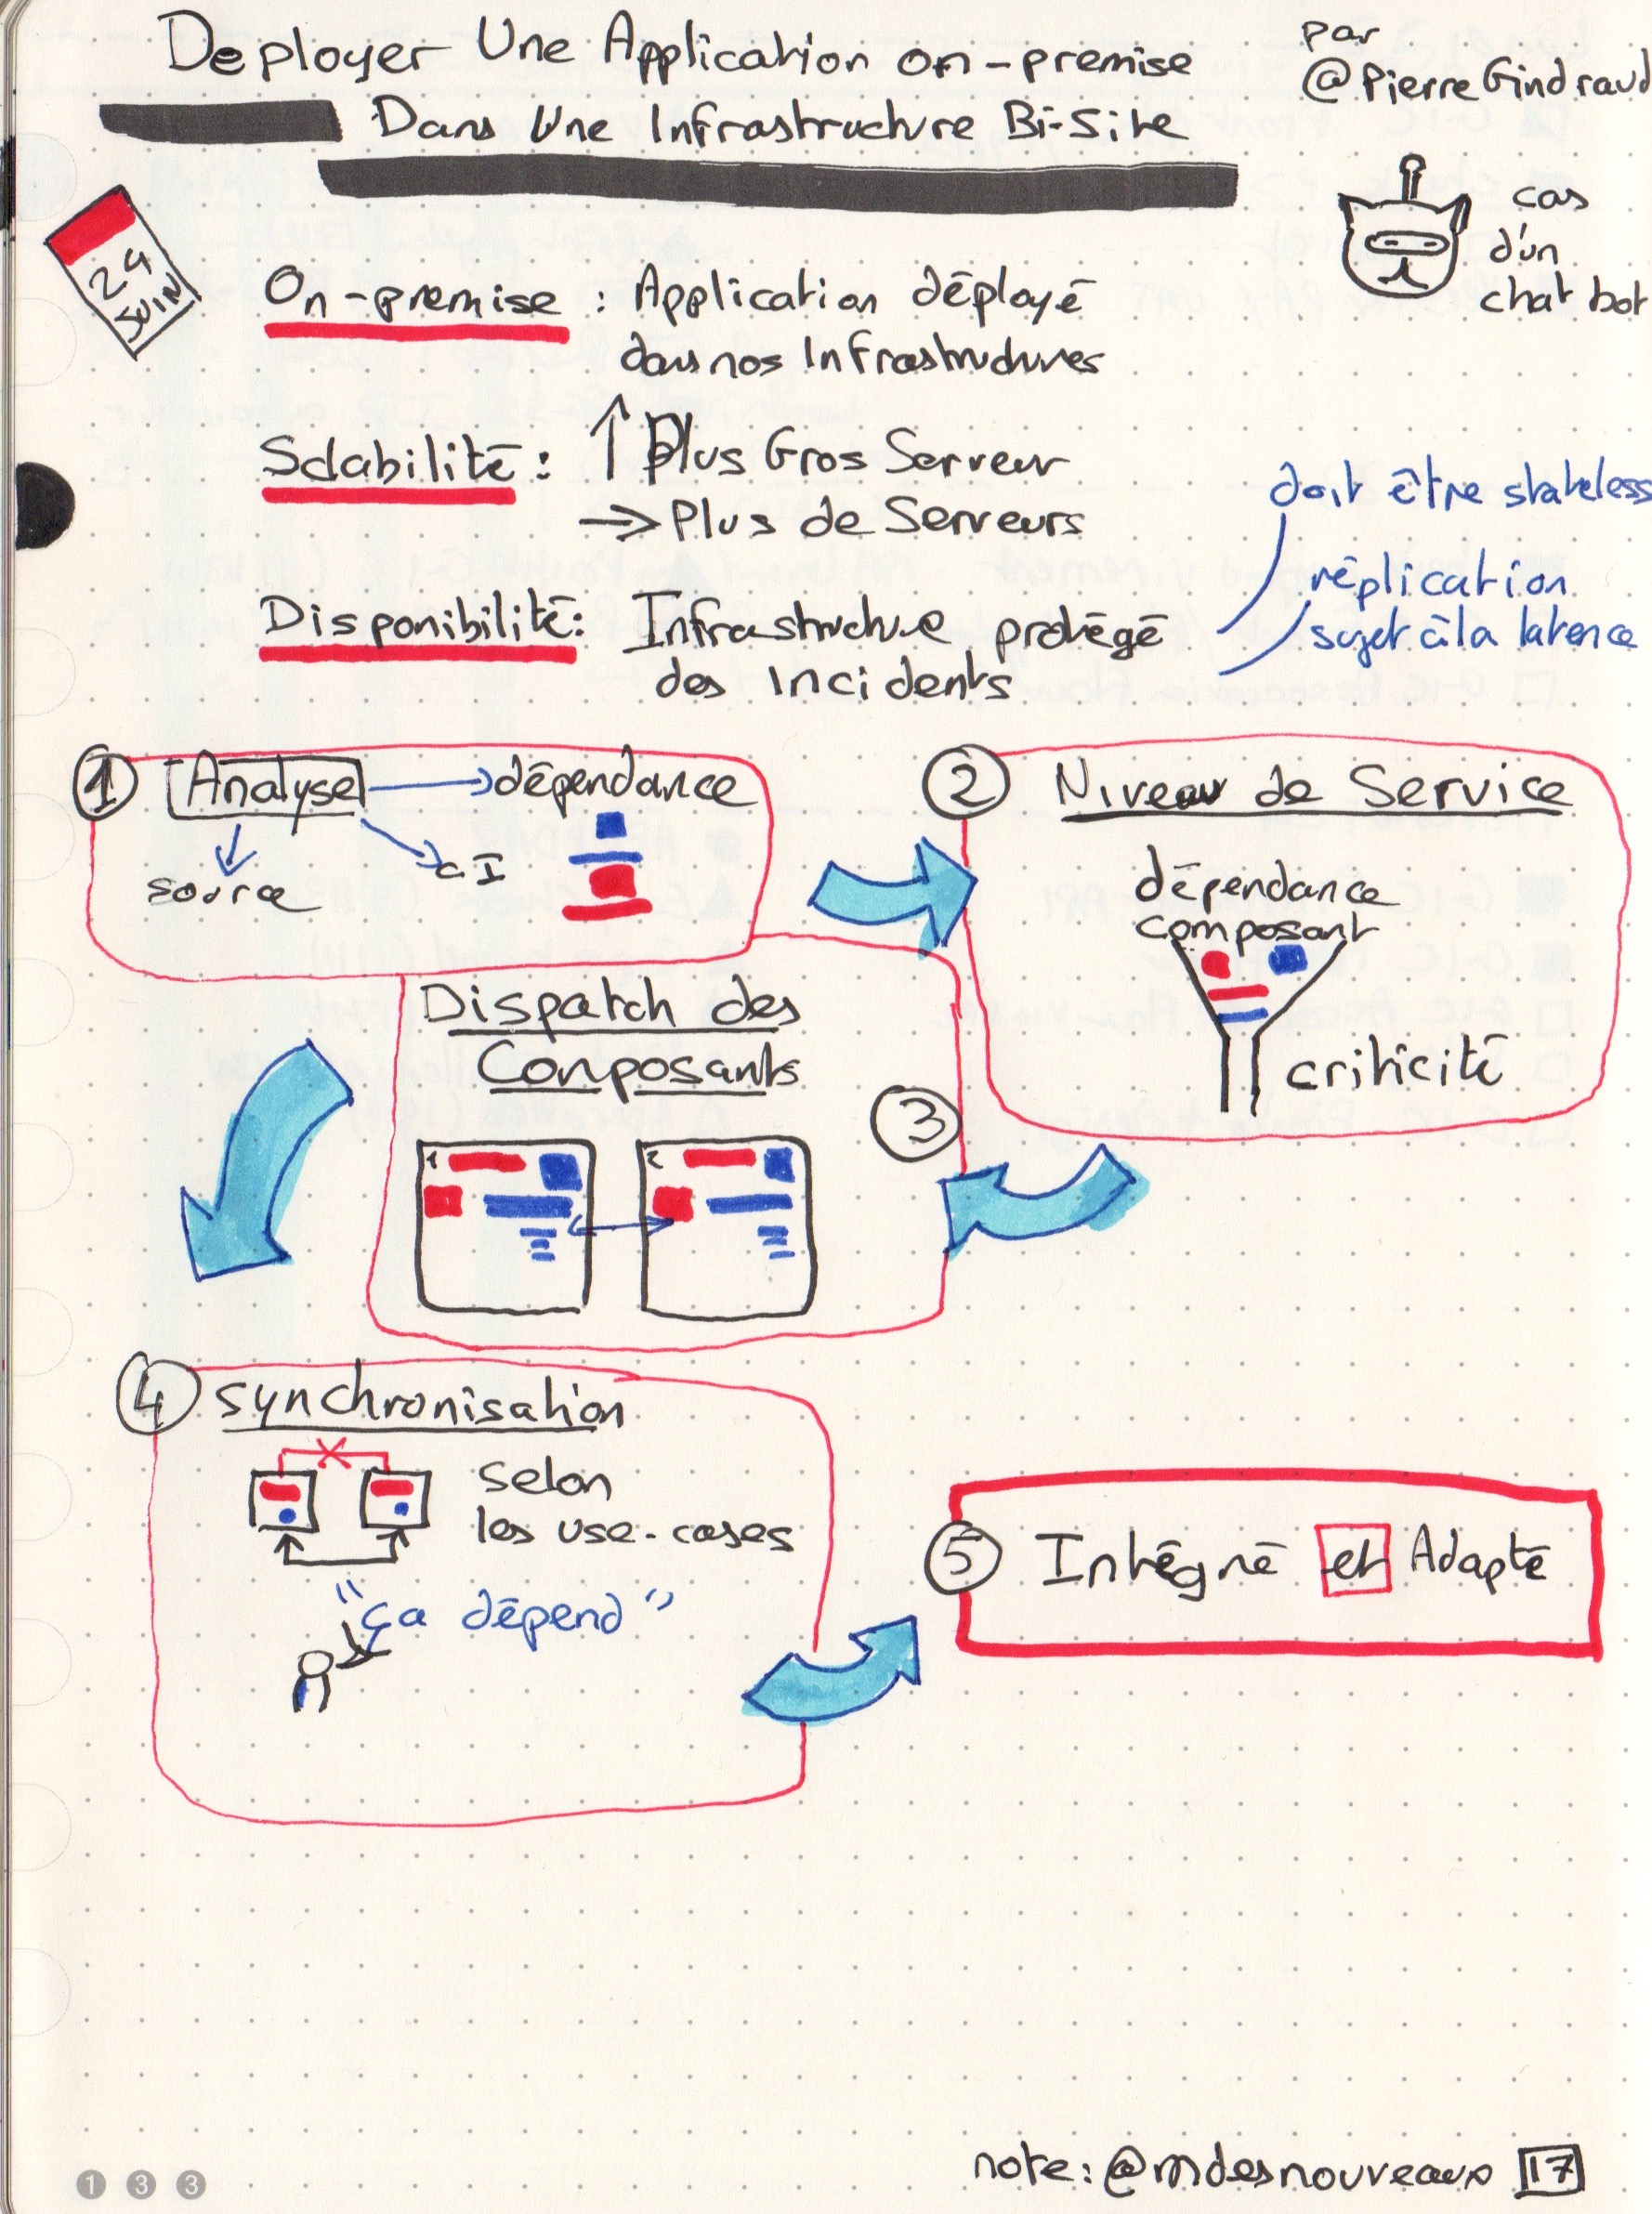 Deployer Une Application on-premise
Dans Une Infrastructure Bi-Site
par
@PierreGindraud
cas
d'un
chat bot
24
JUIN
On-premise : Application déployé
dans nos Infrastructures
Sclabilité : ↑ Plus Gros Serveur
→ Plus de Serveurs
doit être stateless
réplication
sujet à la latence
Disponibilité : Infrastructure protégé
des Incidents
1 Analyse → dépendance
source
CI
2 Niveau de Service
dépendance
composant
criticité
Dispatch des
Composants
3
1
2
4 synchronisation
selon
les use-cases
"ça dépend"
5 Intégré et Adapté
note: @mdesnouveaux 17
133